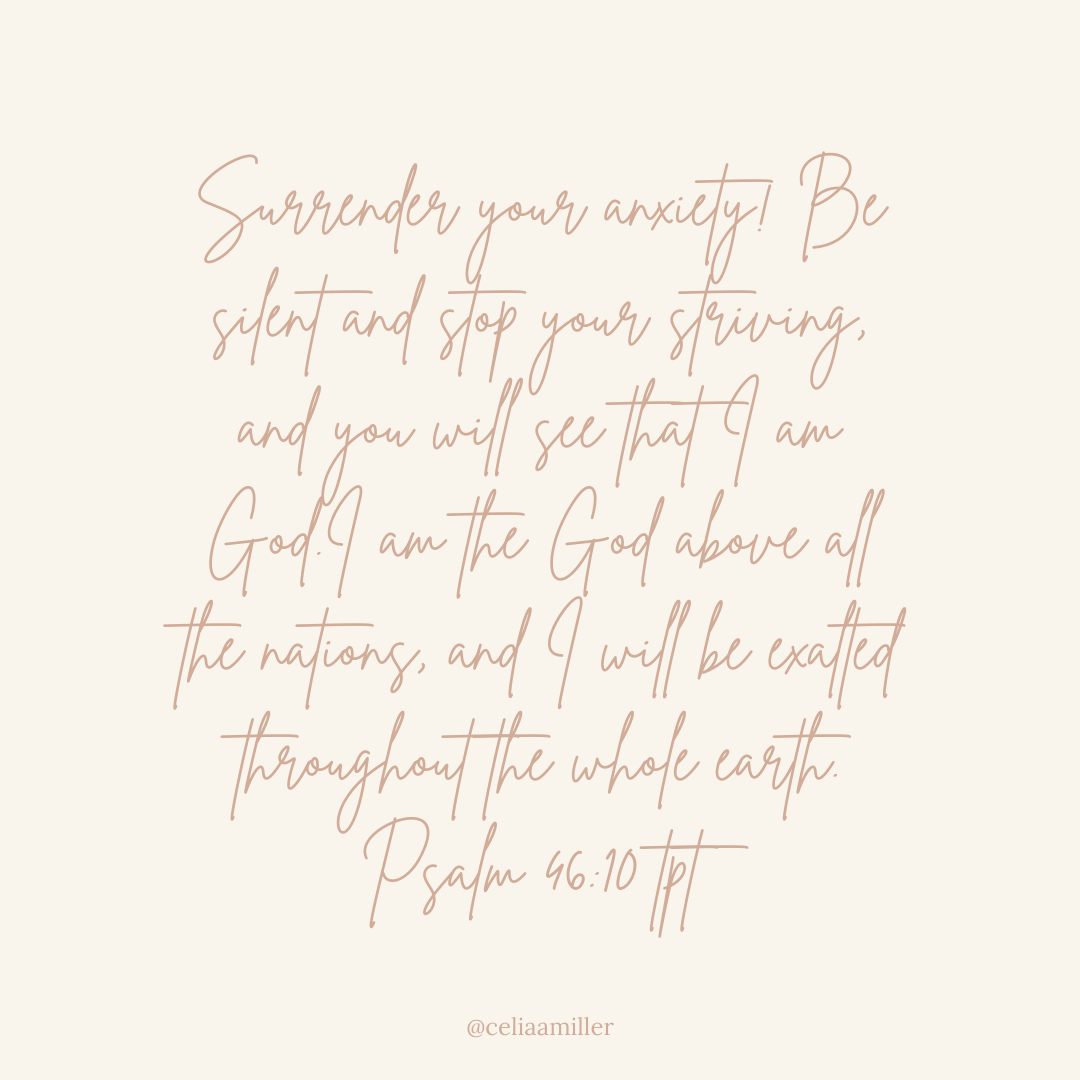 Surrender your anxiety! Be
silent and stop your striving,
and you will see that I am
God. I am the God above all
the nations, and I will be exalted
throughout the whole earth.
Psalm 46:10 tpt
@celiaamiller